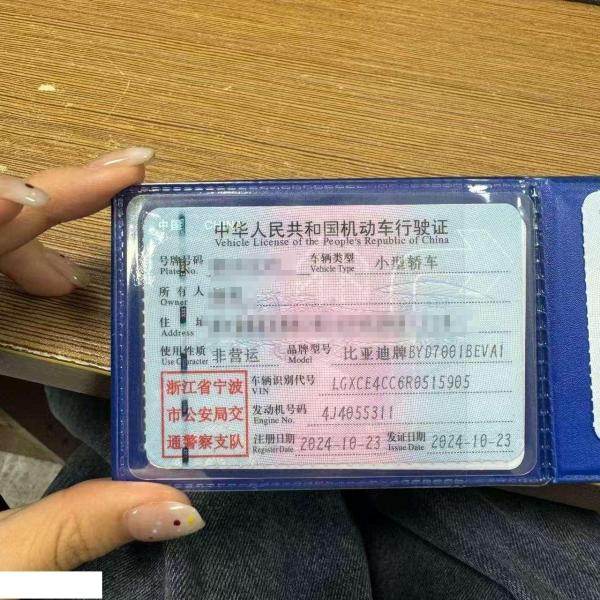 中国 CHINA
中华人民共和国机动车行驶证
Vehicle License of the People's Republic of China
号牌号码 车辆类型 小型轿车
Plate No. Vehicle Type
所有人
Owner
住址
Address
使用性质 非营运 品牌型号 比亚迪牌BYD7001BEVA1
Use Character Model
浙江省宁波
市公安局交
通警察支队
车辆识别代号 LGXCE4CC6R0515905
VIN
发动机号码 4J4055311
Engine No.
注册日期 2024-10-23 发证日期 2024-10-23
Register Date Issue Date